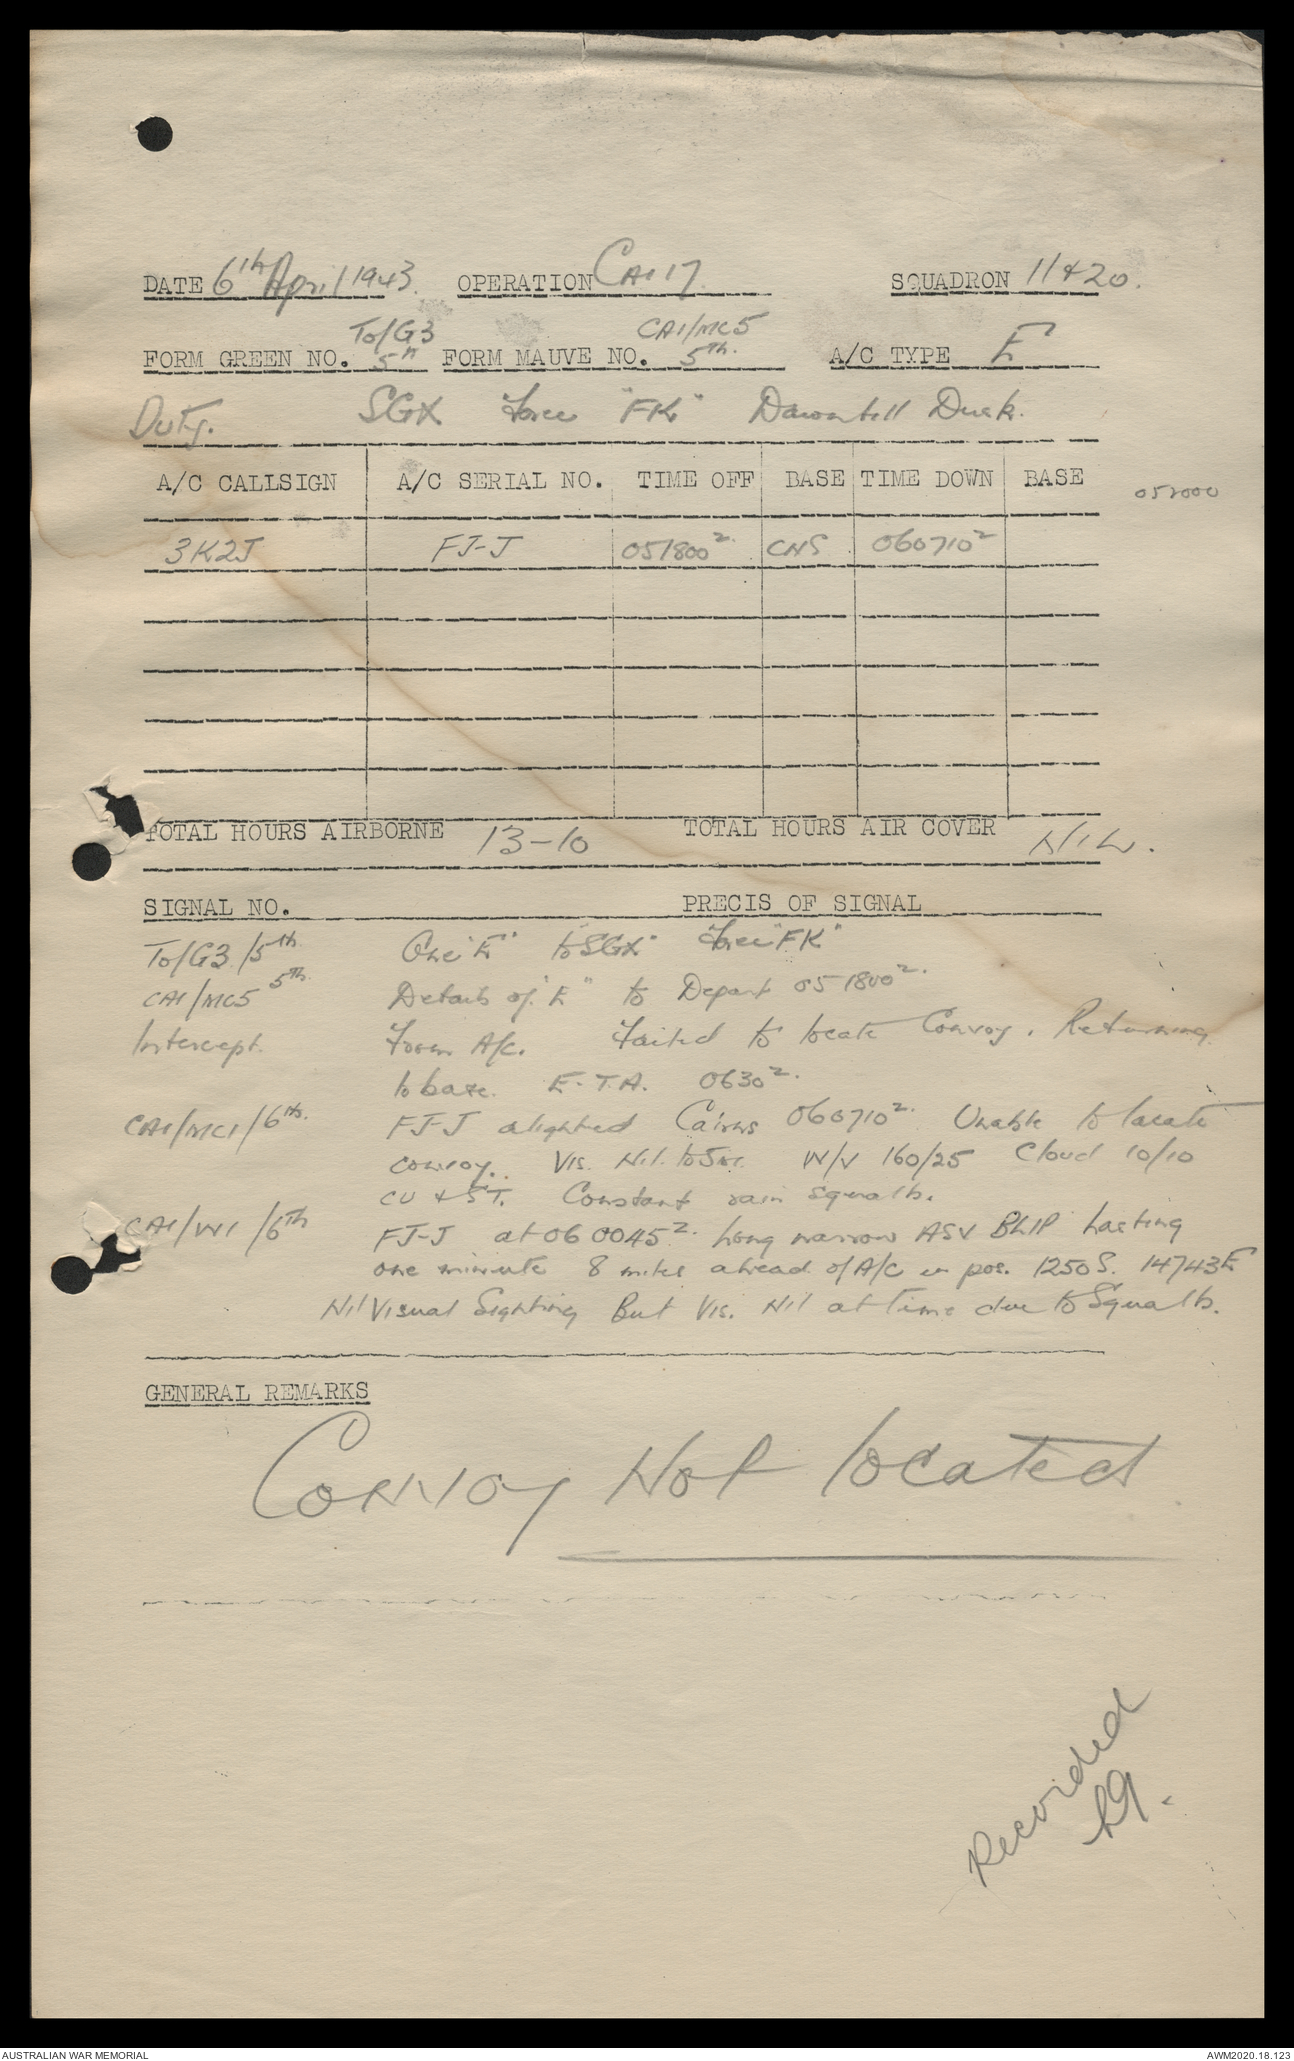 DATE 6th April 1943. OPERATION CA1 17 SQUADRON 11 & 20.
To/G3 CA1/MC5
FORM GREEN NO. 5th FORM MAUVE NO. 5th. A/C TYPE E
Duty. SGX Force "FK" Dawn till Dusk.
A/C CALLSIGN A/C SERIAL NO. TIME OFF BASE TIME DOWN BASE
052000
3K2J FJ-J 051800Z CNS 060710Z
TOTAL HOURS AIRBORNE 13-10 TOTAL HOURS AIR COVER NIL.
SIGNAL NO. PRECIS OF SIGNAL
To/G3/5th One "E" to "SGX" Force "FK"
CA1/MC5 5th Details of "E" to Depart 051800Z.
Intercept. From A/c. Failed to locate Convoy. Returning
to base. E.T.A. 0630Z.
CA1/MC1/6th. FJ-J alighted Cairns 060710Z. Unable to locate
convoy. Vis. Nil. to 5 W/V 160/25 Cloud 10/10
CU & ST. Constant rain squalls.
CA1/W1/6th FJ-J at 060045Z. Long narrow ASV BLIP lasting
one minute 8 miles ahead of A/C in pos. 1250S. 14743E
Nil Visual Sighting But Vis. Nil at time due to Squalls.
GENERAL REMARKS
Convoy Not located
Recorded
AUSTRALIAN WAR MEMORIAL AWM2020.18.123